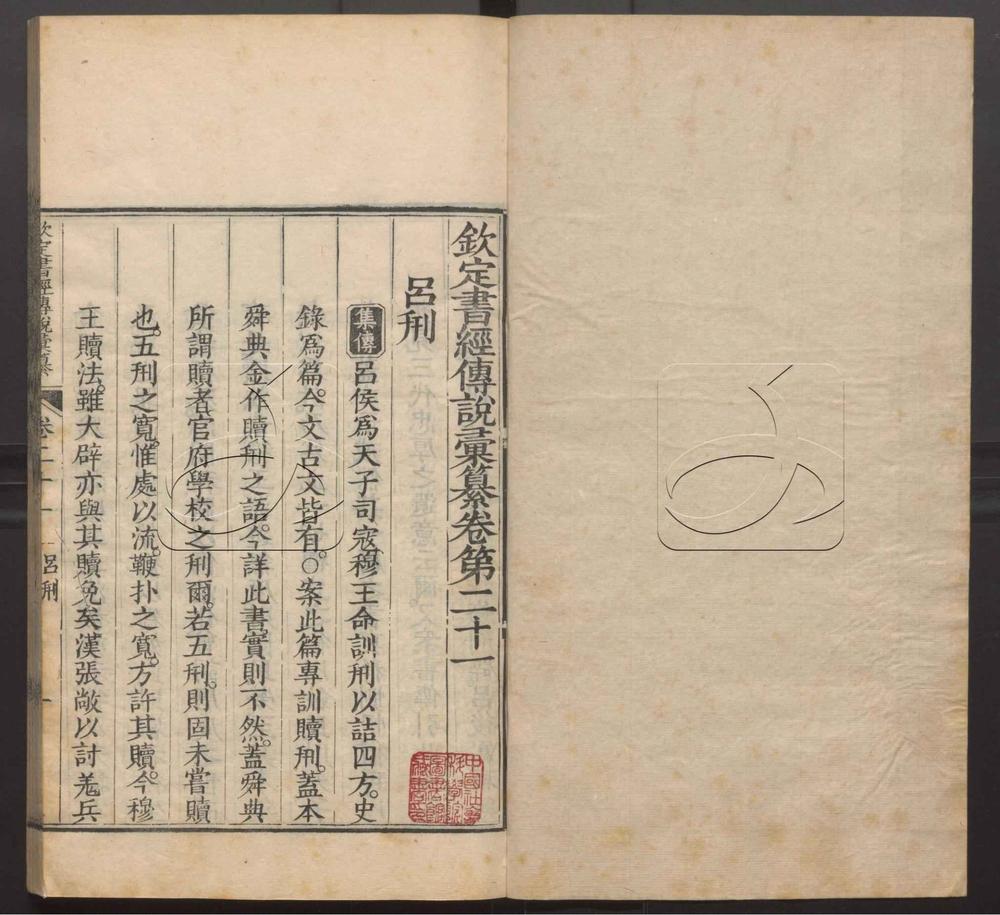 欽定書經傳說彙纂卷第二十一
呂刑
集傳 呂侯爲天子司寇穆王命訓刑以詰四方。史
錄爲篇。今文古文皆有。○案此篇專訓贖刑。蓋本
舜典金作贖刑之語。今詳此書實則不然。蓋舜典
所謂贖者官府學校之刑爾。若五刑。則固未嘗贖
也。五刑之寬。惟處以流。鞭扑之寬。方許其贖。今穆
王贖法。雖大辟亦與其贖免矣漢張敞以討羗兵
欽定書經傳說彙纂 卷二十一 呂刑 一